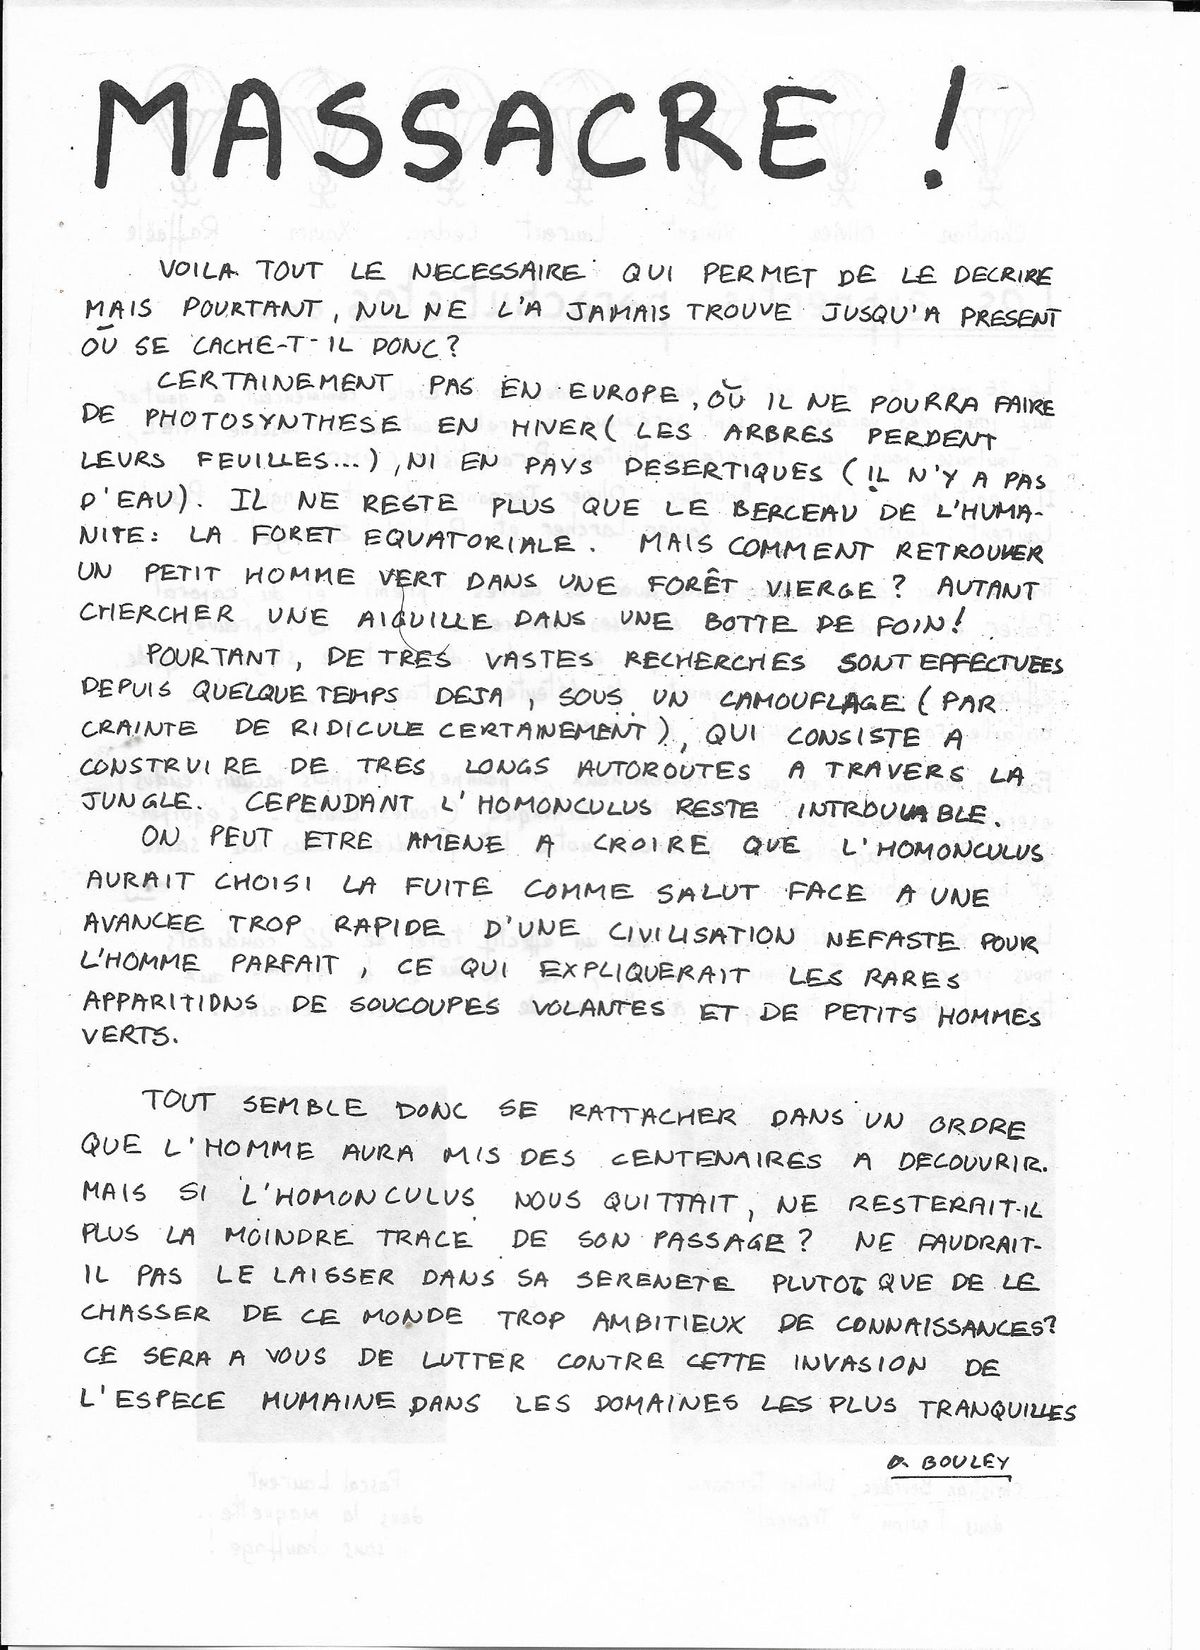 MASSACRE !
VOILA TOUT LE NECESSAIRE QUI PERMET DE LE DECRIRE
MAIS POURTANT, NUL NE L'A JAMAIS TROUVE JUSQU'A PRESENT
OÙ SE CACHE-T-IL DONC?
CERTAINEMENT PAS EN EUROPE, OÙ IL NE POURRA FAIRE
DE PHOTOSYNTHESE EN HIVER ( LES ARBRES PERDENT
LEURS FEUILLES...), NI EN PAYS DESERTIQUES ( IL N'Y A PAS
D'EAU). IL NE RESTE PLUS QUE LE BERCEAU DE L'HUMA-
NITE: LA FORET EQUATORIALE. MAIS COMMENT RETROUVER
UN PETIT HOMME VERT DANS UNE FORÊT VIERGE? AUTANT
CHERCHER UNE AIGUILLE DANS UNE BOTTE DE FOIN!
POURTANT, DE TRES VASTES RECHERCHES SONT EFFECTUEES
DEPUIS QUELQUE TEMPS DEJA, SOUS UN CAMOUFLAGE ( PAR
CRAINTE DE RIDICULE CERTAINEMENT), QUI CONSISTE A
CONSTRUIRE DE TRES LONGS AUTOROUTES A TRAVERS LA
JUNGLE. CEPENDANT L'HOMONCULUS RESTE INTROUVABLE.
ON PEUT ETRE AMENE A CROIRE QUE L'HOMONCULUS
AURAIT CHOISI LA FUITE COMME SALUT FACE A UNE
AVANCEE TROP RAPIDE D'UNE CIVILISATION NEFASTE POUR
L'HOMME PARFAIT, CE QUI EXPLIQUERAIT LES RARES
APPARITIONS DE SOUCOUPES VOLANTES ET DE PETITS HOMMES
VERTS.
TOUT SEMBLE DONC SE RATTACHER DANS UN ORDRE
QUE L'HOMME AURA MIS DES CENTENAIRES A DECOUVRIR.
MAIS SI L'HOMONCULUS NOUS QUITTAIT, NE RESTERAIT-IL
PLUS LA MOINDRE TRACE DE SON PASSAGE? NE FAUDRAIT-
IL PAS LE LAISSER DANS SA SERENETE PLUTOT QUE DE LE
CHASSER DE CE MONDE TROP AMBITIEUX DE CONNAISSANCES?
CE SERA A VOUS DE LUTTER CONTRE CETTE INVASION DE
L'ESPECE HUMAINE DANS LES DOMAINES LES PLUS TRANQUILLES
D. BOULEY